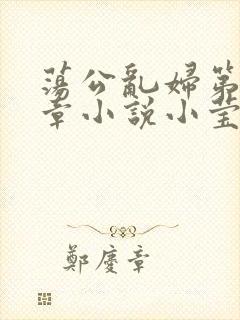 蕩公亂婦第
章小說小莹
鄭慶章